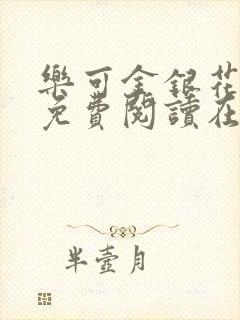 樂可金銀花
免費閱讀在
半壺月